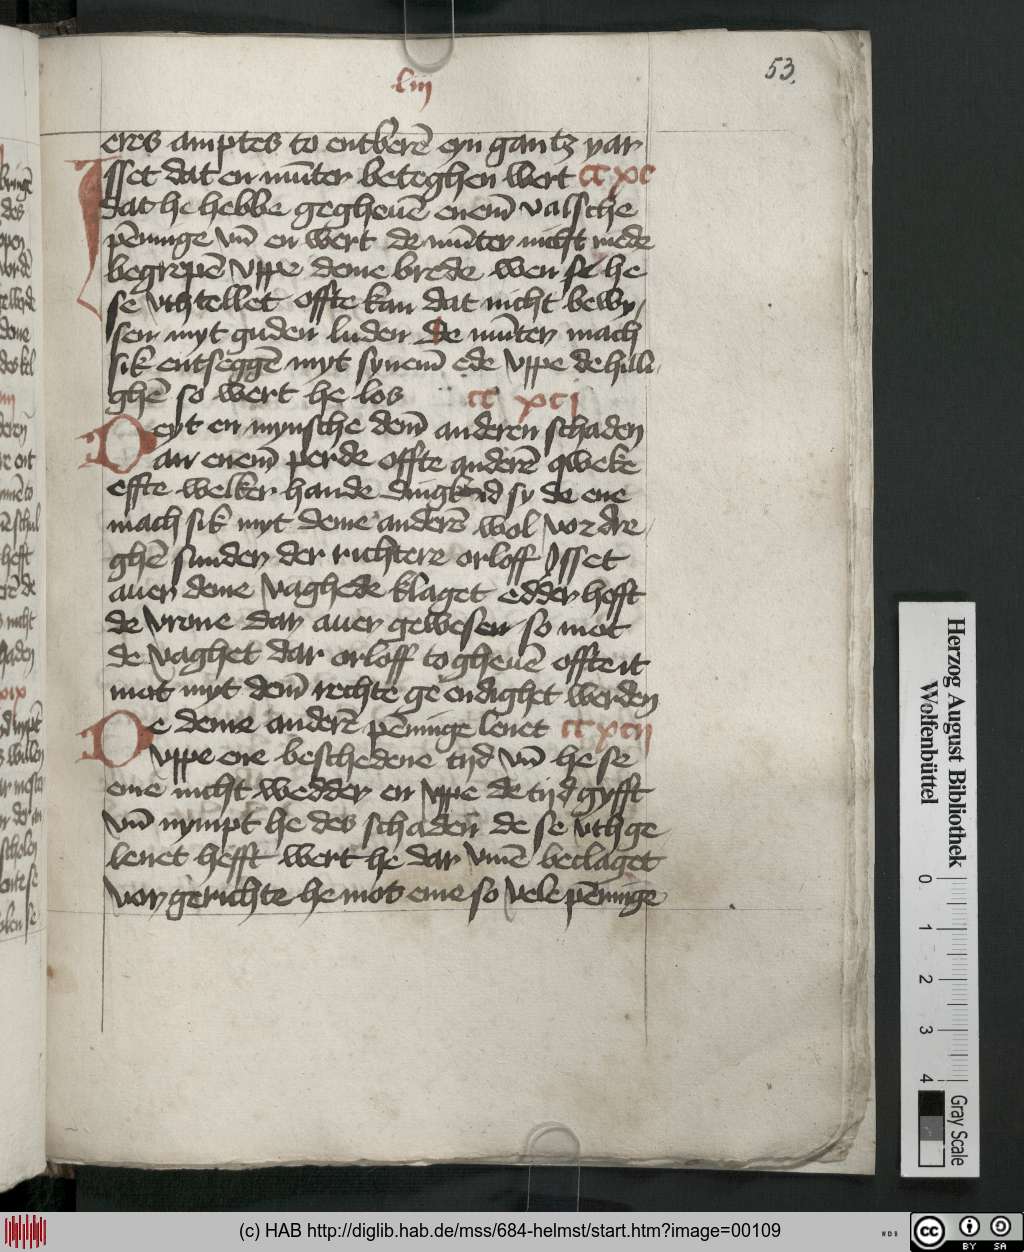 53.
liij
eres amptes to entberē eyn gantz yar
Isset dat en mūter beteghen wert ccxc
dat he hebbe gegheuē enem̄ valsche
pēninge vn̄ en wert de mūter nicht mede
begrepē vppe deme brede wen se he
se vthtellet offte kan dat nicht bewy/
sen myt guden luden De mūter mach
sik entseggē myt synem̄ ede vppe de hilli
ghē so wert he los ccxcj
Deyt en mynsche dem̄ anderen schaden
an enem̄ perde offte anderē qweke
effte welker hande dingk id sy de ene
mach sik myt deme anderē wol vordre/
ghē sunder der richtere orloff Isset
auer deme vaghede klaget edder hefft
de vrone dar auer gewesen so mot
de vaghet dar orloff to gheuē offte it
mot myt dem̄ rechte ge endighet werden
De deme anderē pēninge lenet ccxcij
vppe ene beschedene tijd vn̄ he se
eme nicht wedder en vppe de tijd gyfft
vn̄ nympt he des schaden de se vthge
lenet hefft wert he dar vm̄e beclaget
vor gerichte he mot eme so vele pēninge
Herzog August Bibliothek
Wolfenbüttel
0 1 2 3 4
Gray Scale
(c) HAB http://diglib.hab.de/mss/684-helmst/start.htm?image=00109
BY SA